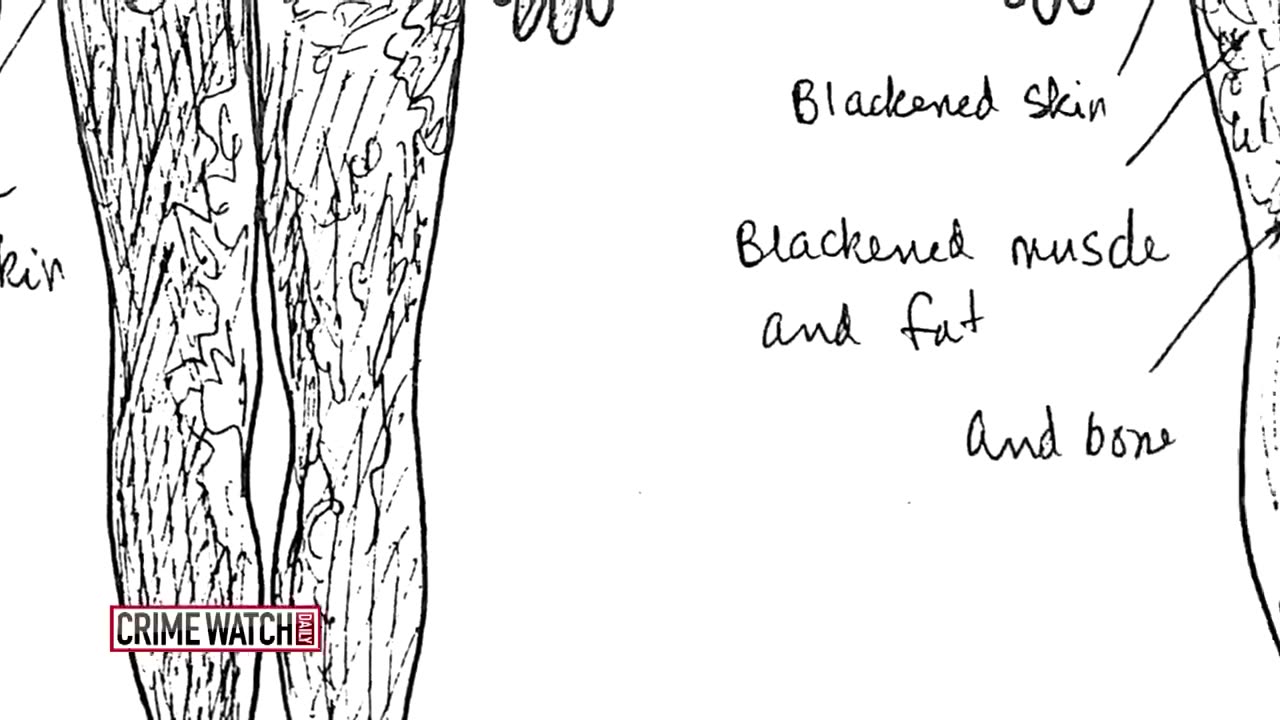 Blackened skin
Blackened muscle
and fat
and bone
kin
CRIME WATCH DAILY